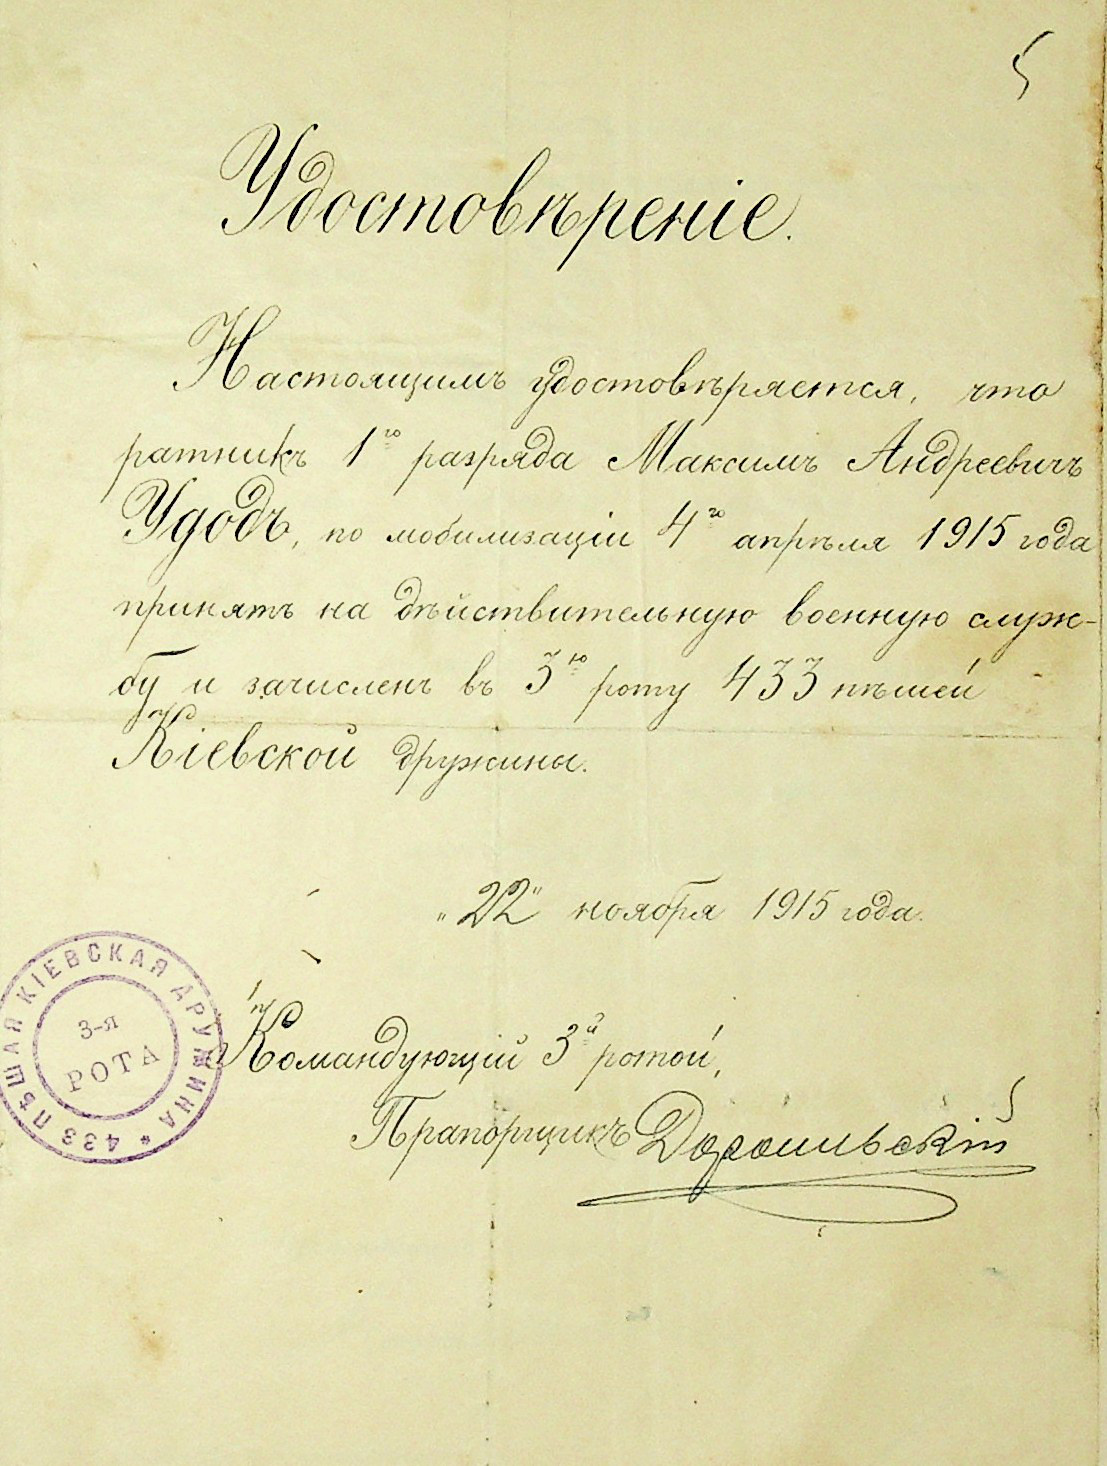 5
Удостовѣреніе.
Настоящимъ удостовѣряется, что
ратникъ 1го разряда Максимъ Андреевичъ
Удодъ, по мобилизаціи 4го апрѣля 1915 года
принятъ на дѣйствительную военную служ-
бу и зачисленъ въ 3ю роту 433 пѣшей
Кіевской дружины.
„22" ноября 1915 года.
Командующій 3й ротой,
Прапорщикъ
433 ПѢШАЯ КІЕВСКАЯ ДРУЖИНА *
3-я
РОТА